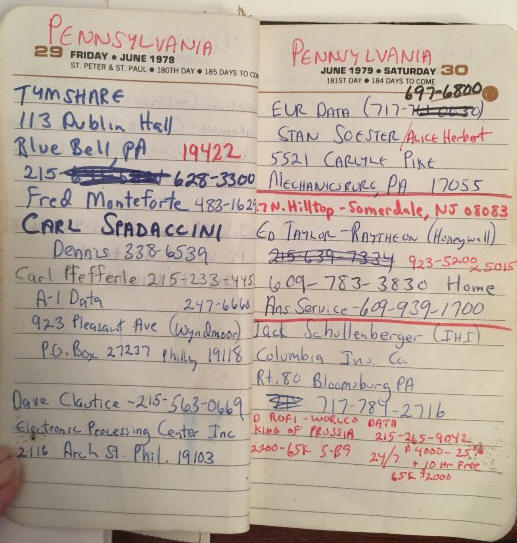 PENNSYLVANIA
29 FRIDAY • JUNE 1979
ST. PETER & ST. PAUL • 180TH DAY • 185 DAYS TO COME
TYMSHARE
113 Dublin Hall
Blue Bell, PA 19422
215 628-3300
Fred Monteforte 483-1629
CARL SPADACCINI
Dennis 338-6539
Carl Pfefferle 215-233-445
A-1 Data 247-6666
923 Pleasant Ave (Wyndmoor)
P.O. Box 27237 Philly 19118
Dave Clautice - 215-563-0669
Electronic Processing Center Inc
2116 Arch St. Phil. 19103
PENNSYLVANIA
JUNE 1979 • SATURDAY 30
181ST DAY • 184 DAYS TO COME
697-6800
EUR DATA (717-
STAN SOESTER/Alice Herbert
5521 CARLYLE PIKE
MECHANICSBURG, PA 17055
7 N. Hilltop - Somerdale, NJ 08083
ED TAYLOR - RAYTHEON (Honeywell)
215-639-7334 923-5200 25015
609-783-3830 Home
Ans Service - 609-939-1700
Jack Schollenberger (IHI)
Columbia Ins. Co.
Rt. 80 Bloomsburg PA
717-784-2716
D ROFI - WORLCO DATA
KING OF PRUSSIA 215-265-9042
2200-65K S-B9 24/7 $4000 - 25%
+ 10 Hr Free
65K $2000